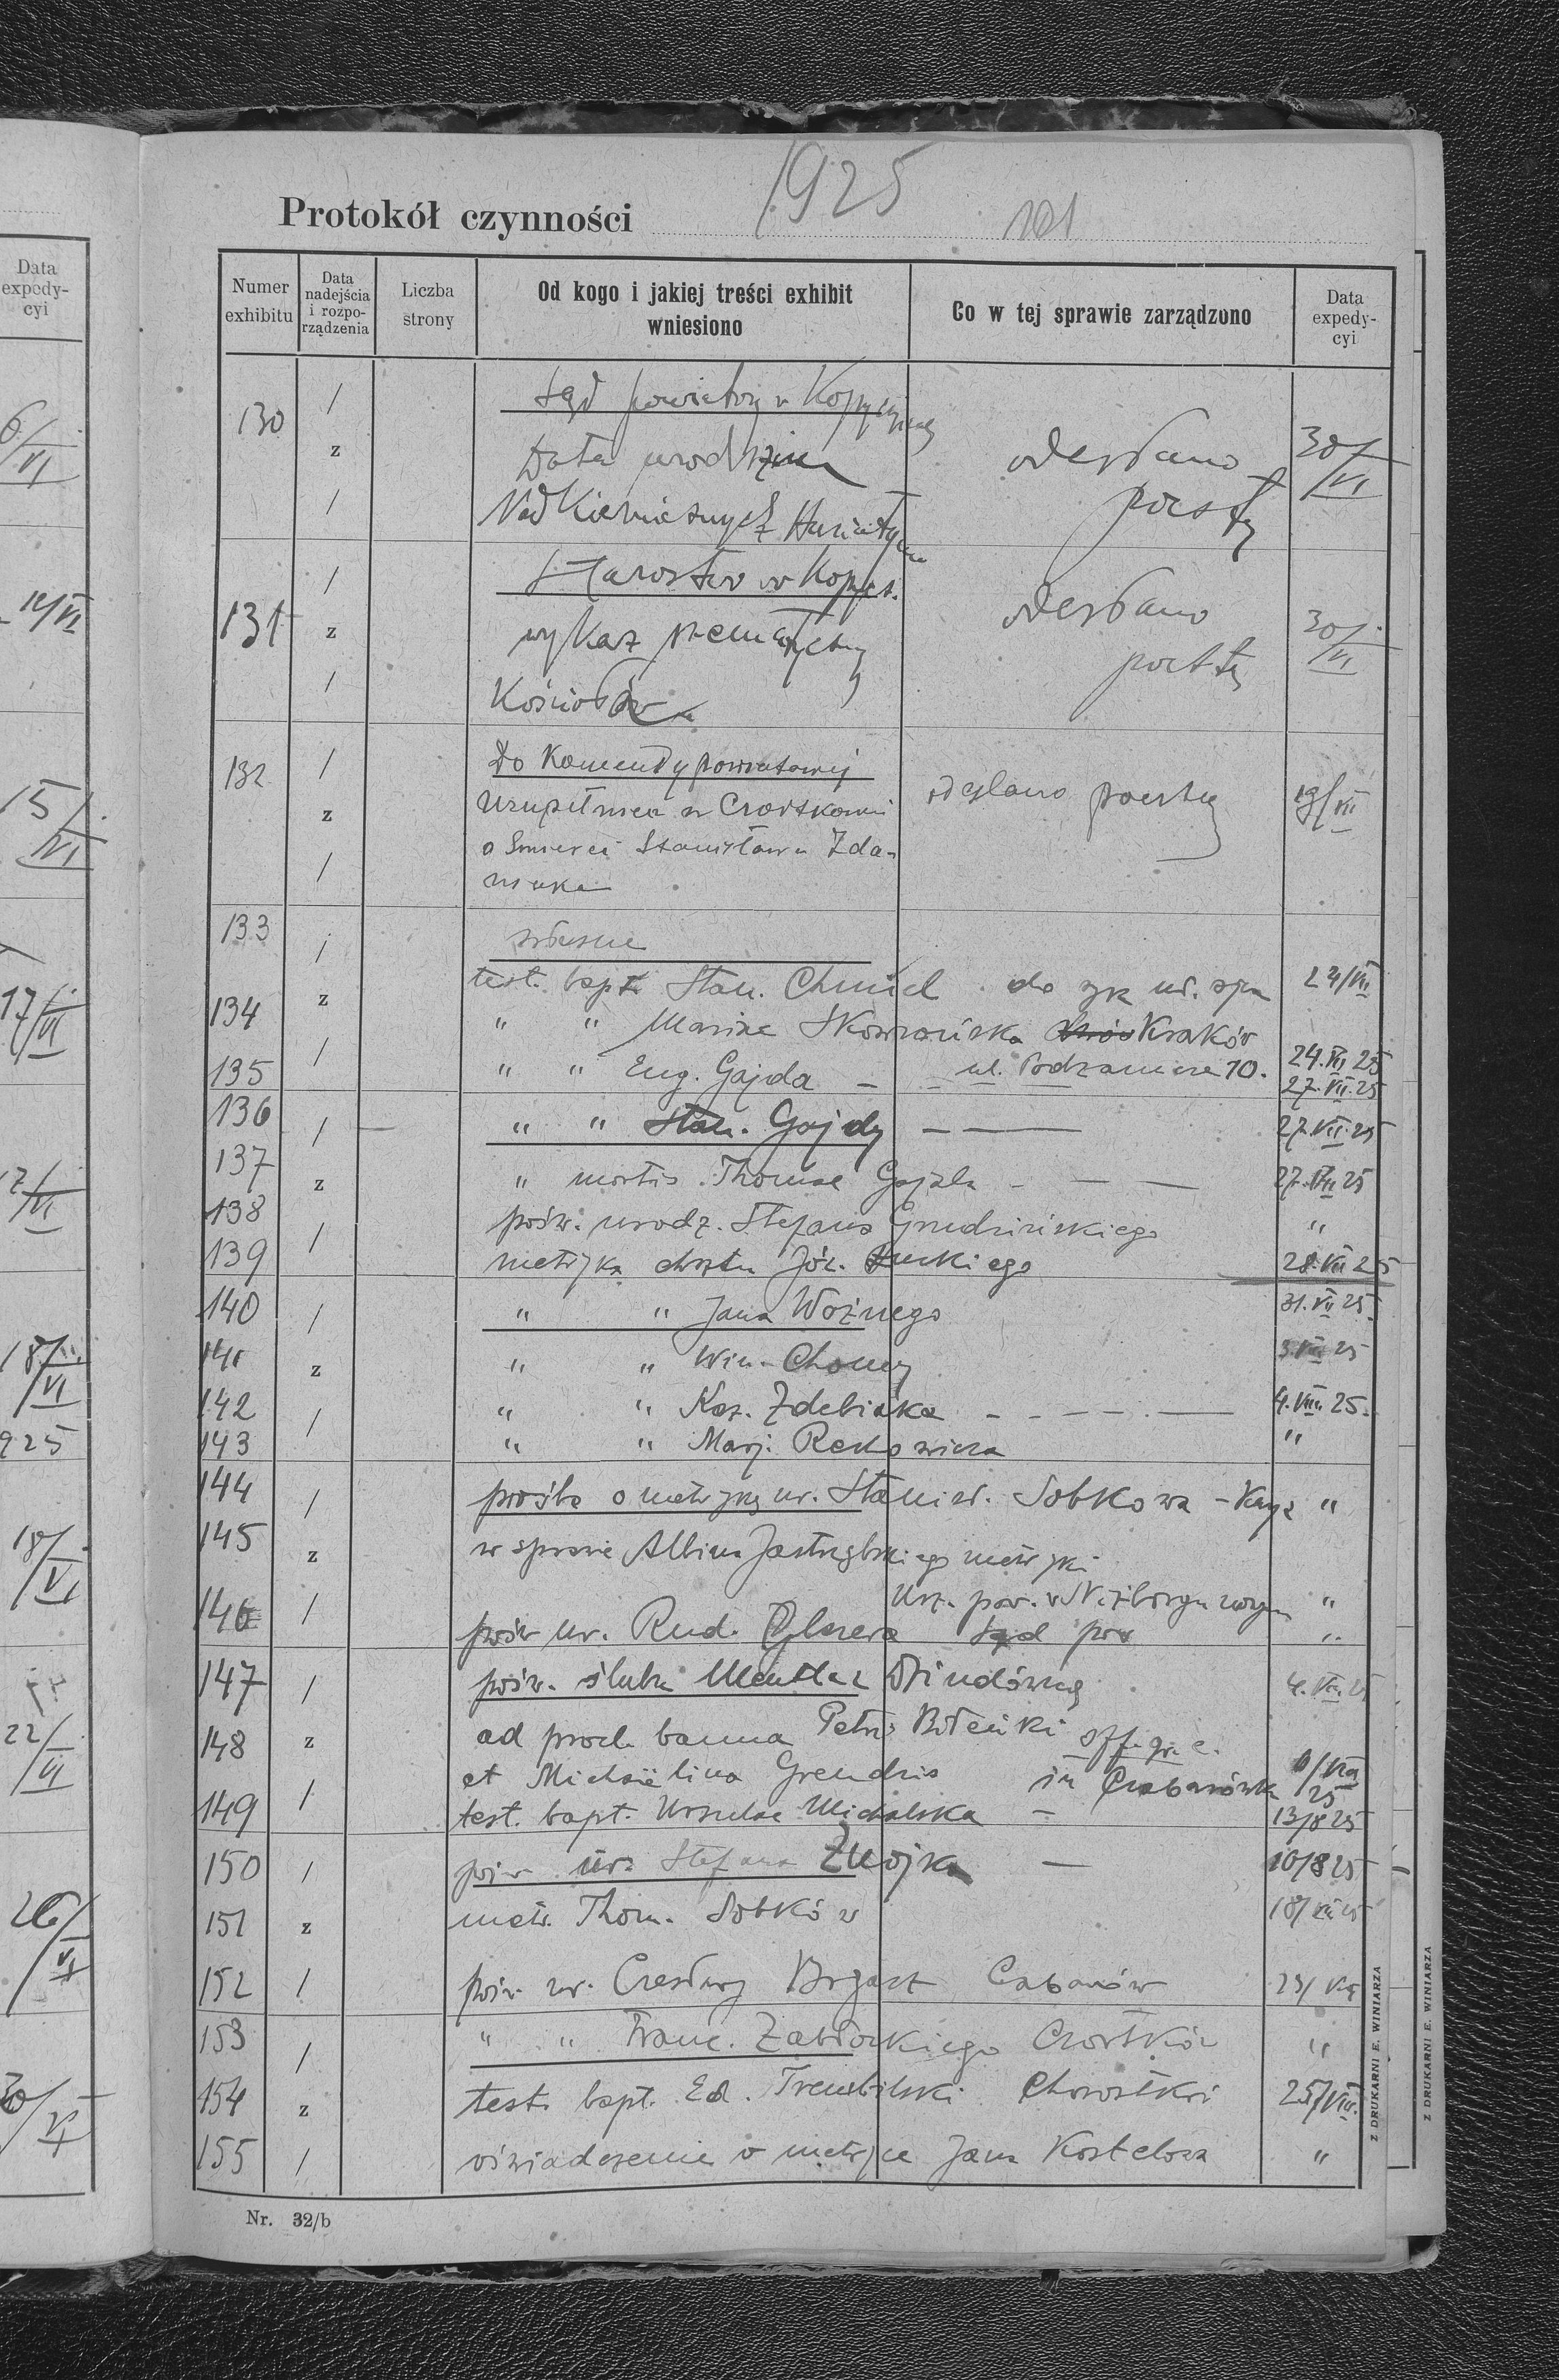 Data
expedy-
cyi
6/VI
14/VI
15/VI
17/VI
17/VI
18/VI
925
18/VI
22/VI
26/VI
30/VI
1925
Protokół czynności
101
Numer
exhibitu
Data
nadejścia
i rozpo-
rządzenia
Liczba
strony
Od kogo i jakiej treści exhibit
wniesiono
Co w tej sprawie zarządzono
Data
expedy-
cyi
130 / Sąd powiatowy w
z Data urodzin odesłano 30/VI
/ pocztą
/ Starostwo w Kopycz.
131 z wykaz odesłano 30/VI
/ Kościołów pocztą
132 / Do Komendy powiatowej
z Uzupełnień w Czortkowie odesłano pocztą 19/VII
/ o śmierci Stanisława Zda-
niuka
133 / własne
z test. bapt. Stan. Chmiel do 24/VII
134 " " Mariae Skowrońska Kraków
/ ul. Podzamcze 10. 24.VII 25
135 " " Eug. Gajda — 27.VII.25
136 / " " Stan. Gajdy — 27.VII.25
137 z " mortis Thomae Gajda — — — 27.VII 25
138 pośw. urodz. Stefana Grudzińskiego "
139 / metryka chrztu Józ. 28.VII 25
140 / " " Jana Woźnego 31.VII 25
141 z " " Win. Chomy 3.VIII 25
142 / " " Kaz. Zdebiaka — — — 4.VIII.25.
143 " " Marj. Reckowicza "
144 / prośba o metrykę ur. Stanisł. Sobkowa "
145 z w sprawie Albina Jastrzębskiego metryki
Urz. par. w Niżborgu nowym "
146 / pośw ur. Rud. Sąd pow "
147 / pośw. ślubu 4.VIII.25
148 z ad procl. banna Petri off. gr. c.
et Michaëlina in Czabarówka /VIII 25
149 / test. bapt. Ursulae Michalska — 13/8 25
150 / pośw ur. Stefana Żnojka — 10/8 25
151 z metr. Thom. Sobków 18/VIII 25
152 / pośw. ur. Czesławy Brzast Cabanów 23/VIII
153 / " " Franc. Zabłockiego Czortków "
154 z test. bapt. Ed. Trembilski Chorostków 25/VIII.
155 / oświadczenie o metryce Jana "
Nr. 32/b
Z DRUKARNI E. WINIARZA
Z DRUKARNI E. WINIARZA